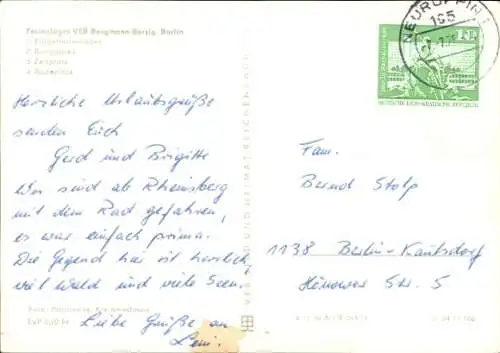 Ferienlager VEB Bergmann-Borsig, Berlin
2 Bungalows
3 Zeltplatz
4 Badeplatz
Herzliche Urlaubsgrüße
senden Euch
Gerd und Brigitte
Wir sind ab Rheinsberg
mit dem Rad gefahren,
es war einfach prima.
Die Gegend hier ist herrlich,
viel Wald und viele Seen.
Liebe Grüße an
Leni.
VEB BILD UND HEIMAT REICHENBACH
NEURUPPIN 1
195
DEUTSCHE DEMOKRATISCHE REPUBLIK
Fam.
Bernd Stolp
1138 Berlin-Kaulsdorf
Hönower Str. 5